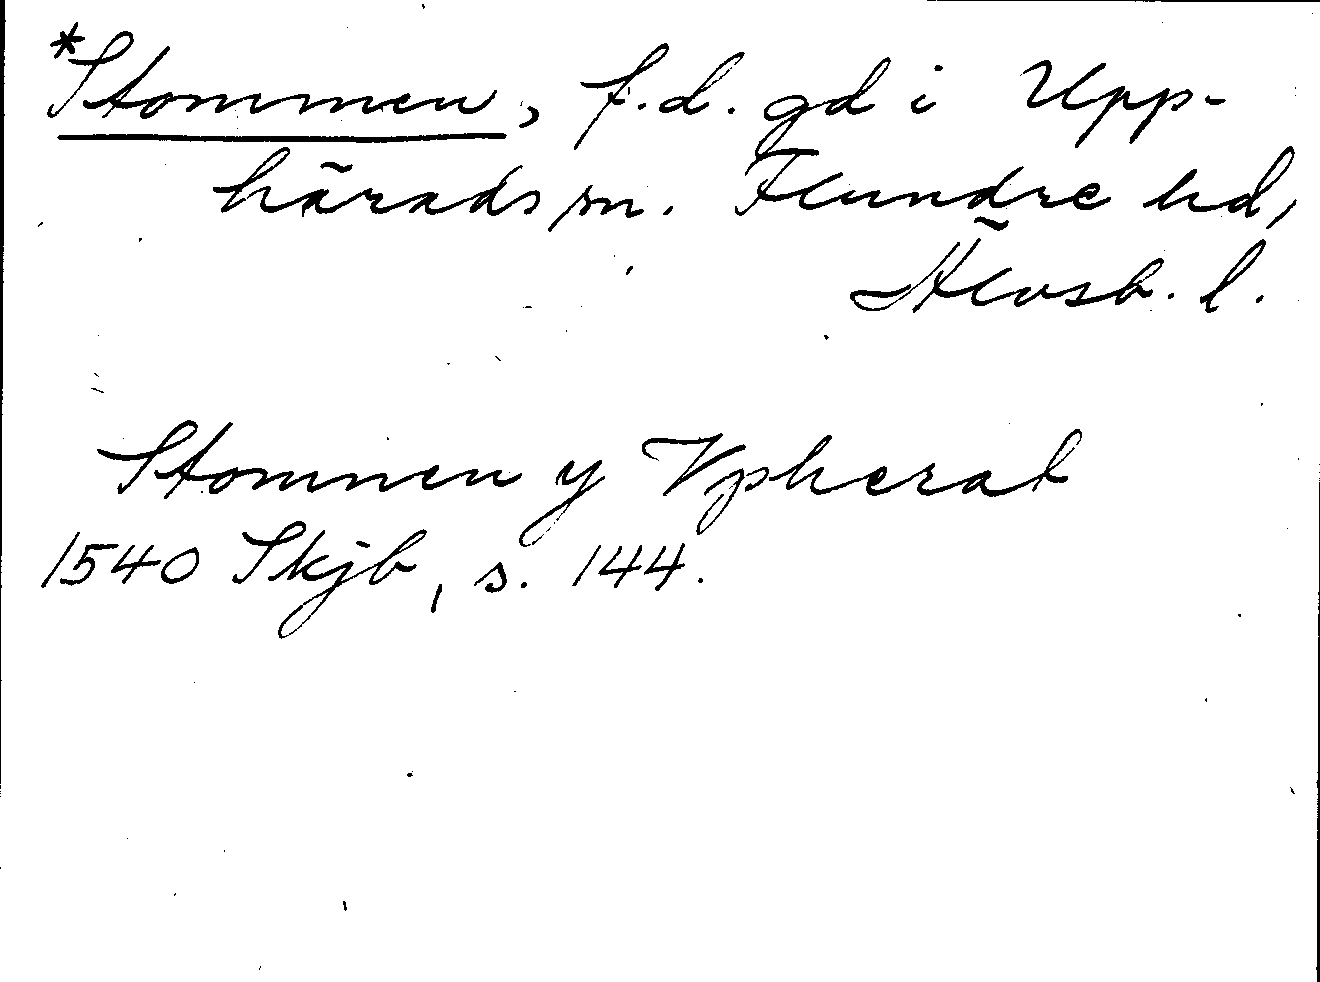 *Stommen, f.d. gd i Upp-
härads sn. Flundre hd,
Älvsb. l.
Stommen y Vpherat
1540 Skjb, s. 144.